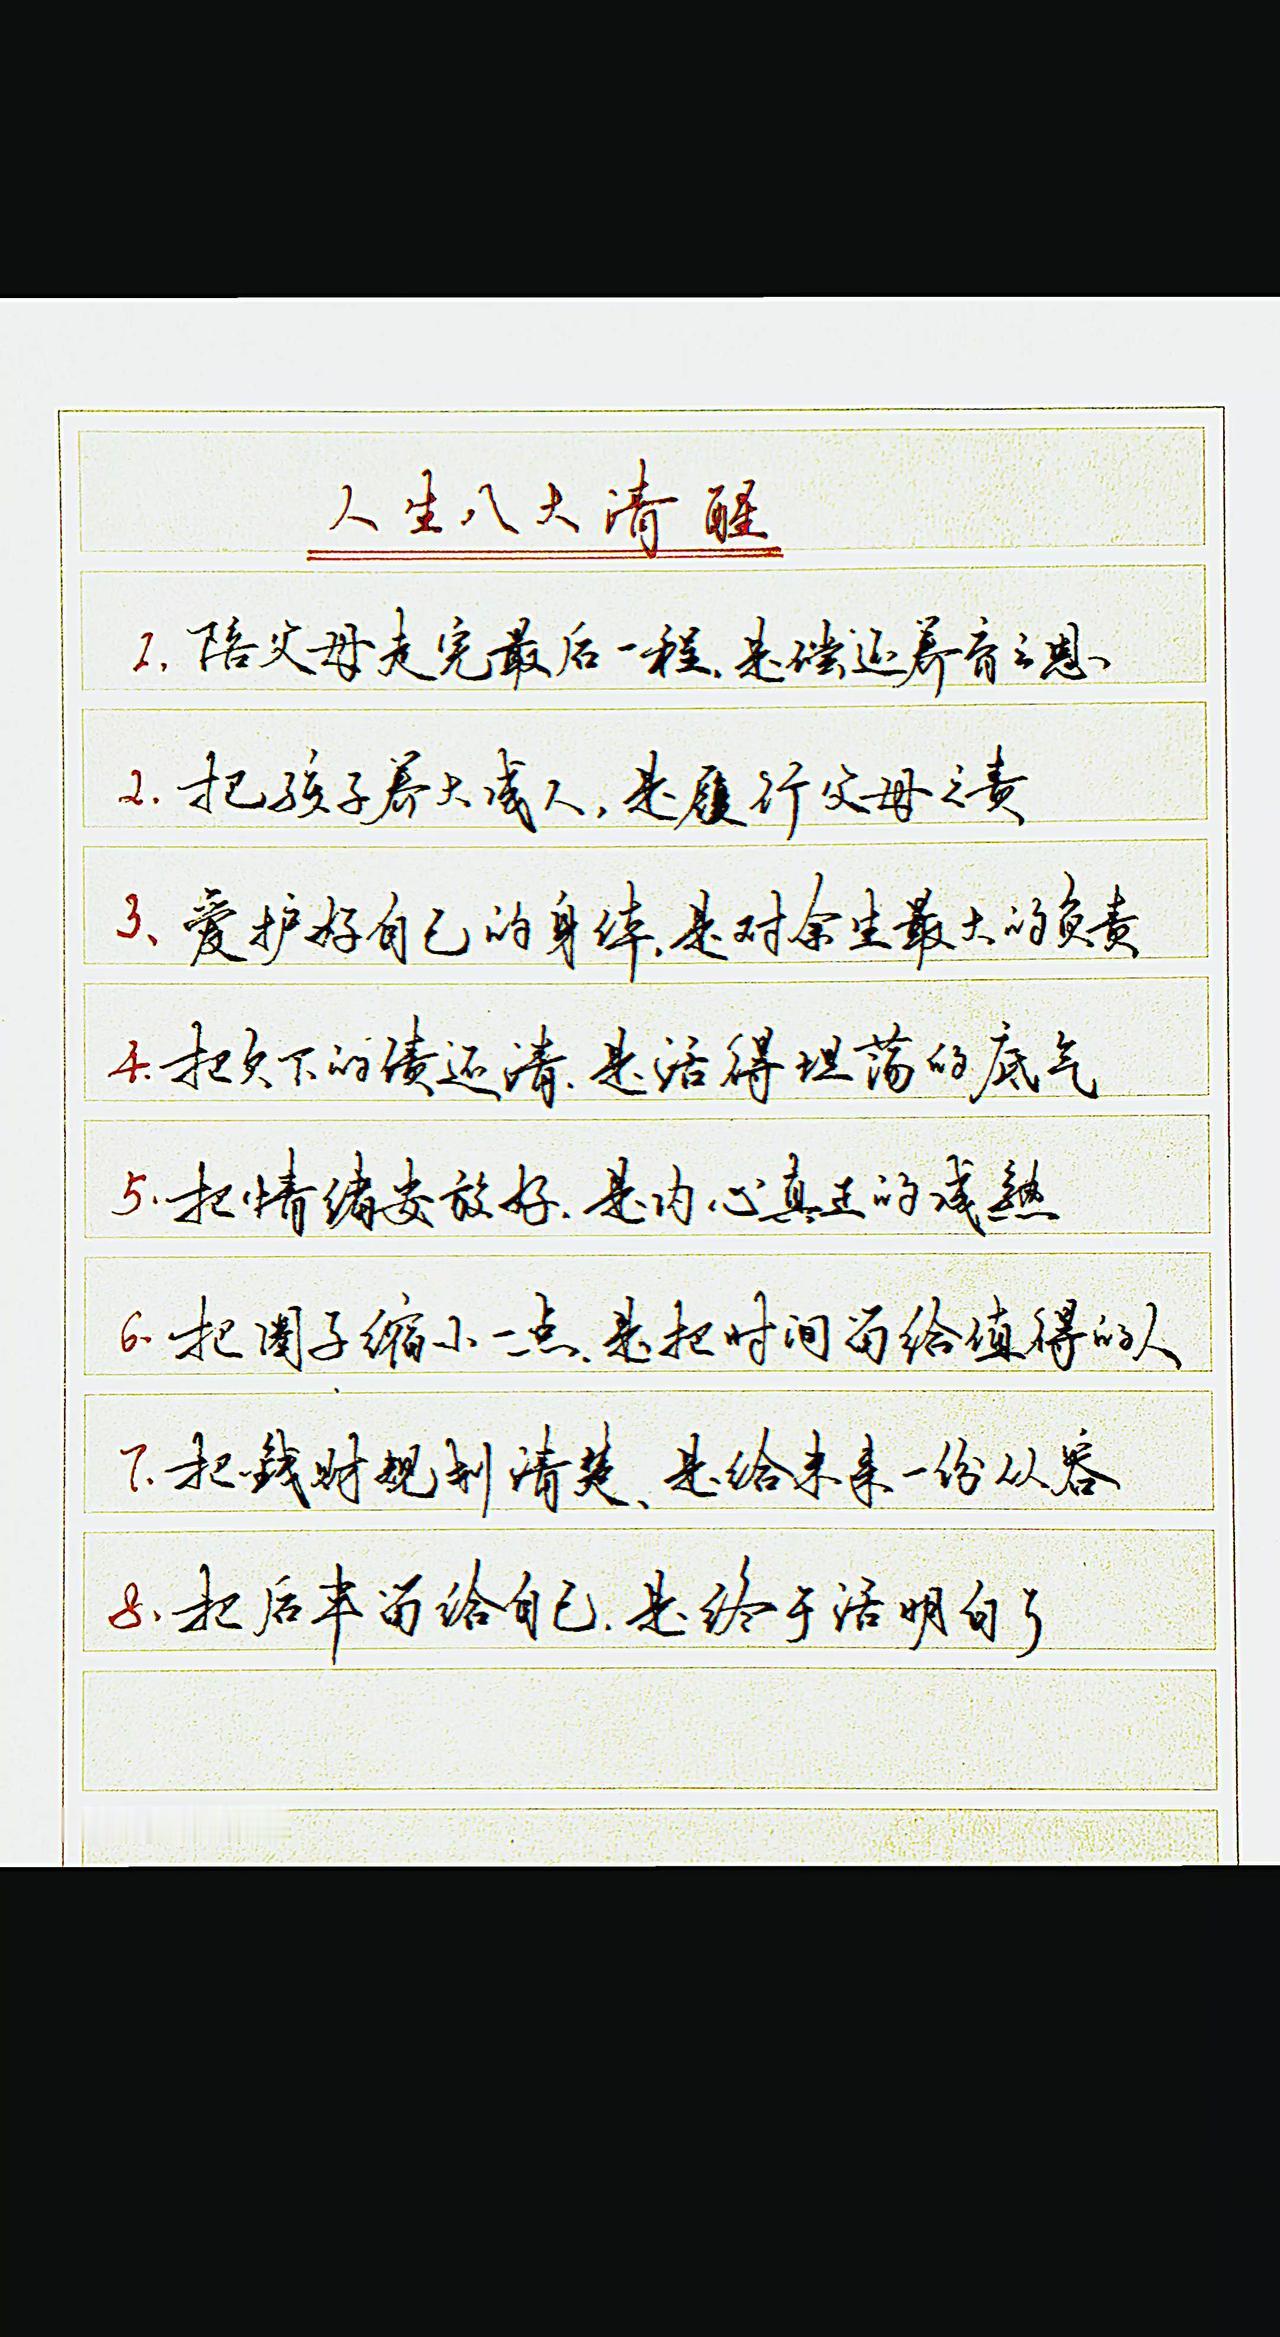 人生八大清醒
1、陪父母走完最后一程、是偿还养育之恩、
2、把孩子养大成人、是履行父母之责
3、爱护好自己的身体、是对余生最大的负责
4、把欠下的债还清、是活得坦荡的底气
5、把情绪安放好、是内心真正的成熟
6、把圈子缩小一点、是把时间留给值得的人
7、把钱财规划清楚、是给未来一份从容
8、把后半留给自己、是终于活明白了